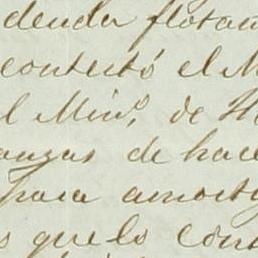 deuda flotan
contestó el M
l Min.º de H
anzas de hace
para amorti
s que lo con